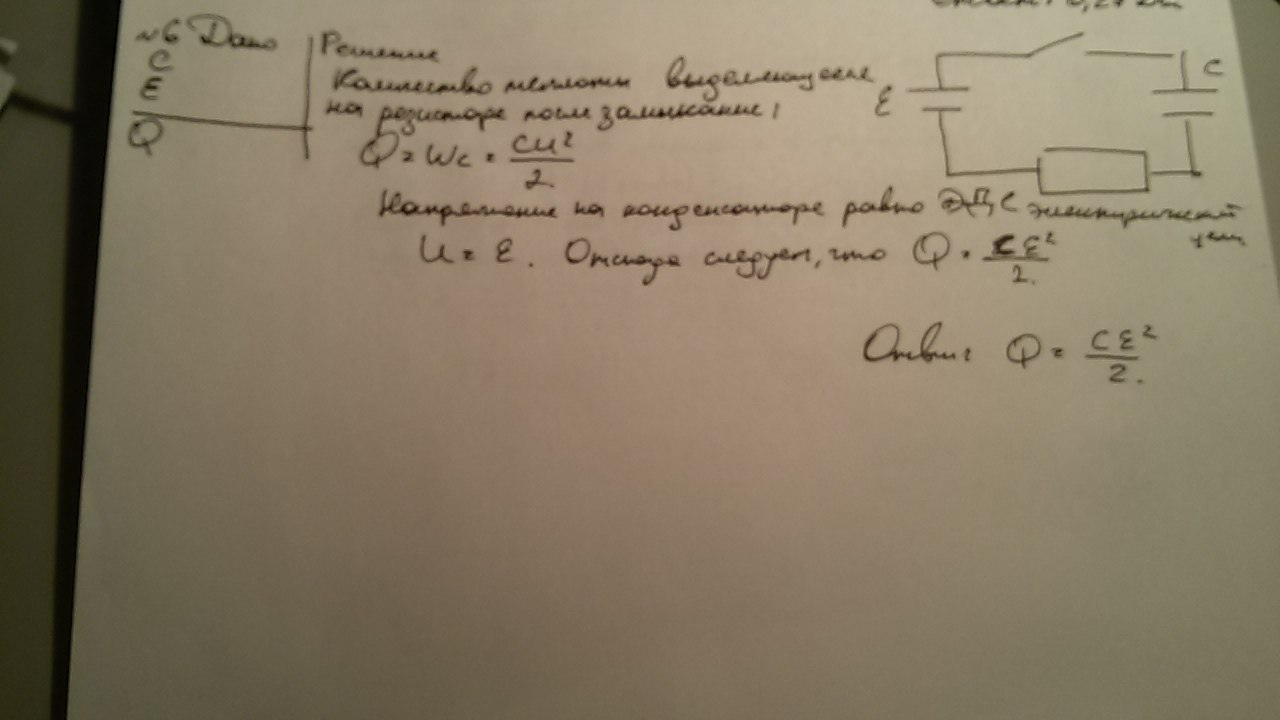 №6 Дано
C
Ɛ
Q
Решение
Количество теплоты выделяющееся
на резисторе после замыкание;
Q = Wc = CU²/2
Ɛ
C
Напряжение на конденсаторе равно ЭДС электрической
цепи
U = Ɛ. Отсюда следует, что Q = CƐ²/2.
Ответ: Q = CƐ²/2.